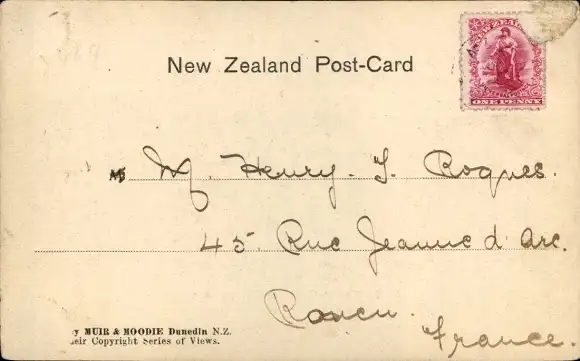 New Zealand Post-Card
NEW ZEALAND
ONE PENNY
M Henry. J. Roques.
45. Rue Jeanne d'Arc.
Rouen.
France.
y MUIR & MOODIE Dunedin N.Z.
eir Copyright Series of Views.